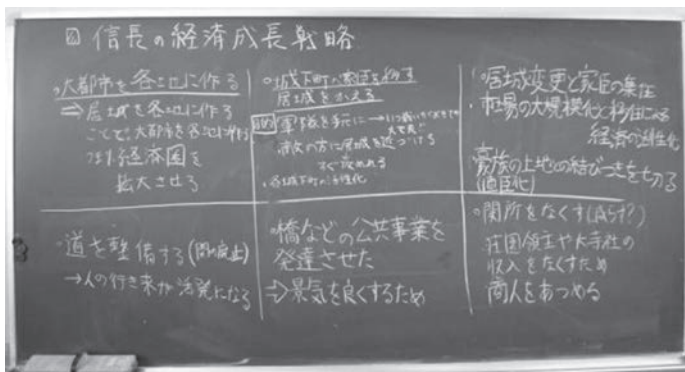 信長の経済成長戦略
・大都市を各地に作る
⇒居城を各地に作る
ことで、大都市を各地に作り
経済圏を
拡大させる
・城下町に家臣を移す
居城をかえる
軍隊を手元に→いつ戦いがおきても
大丈夫に
次の方に居城を近づける
すぐ攻めれる
・各城下町の活性化
・居城変更と家臣の集住
・市場の大規模化と移住による
経済の活性化
豪族の土地との結びつきを切る
(直臣化)
・道を整備する(関の廃止)
→人の行き来が活発になる
・橋などの公共事業を
発達させた
⇒景気を良くするため
・関所をなくす(減らす?)
荘園領主や大寺社の
収入をなくすため
商人をあつめる